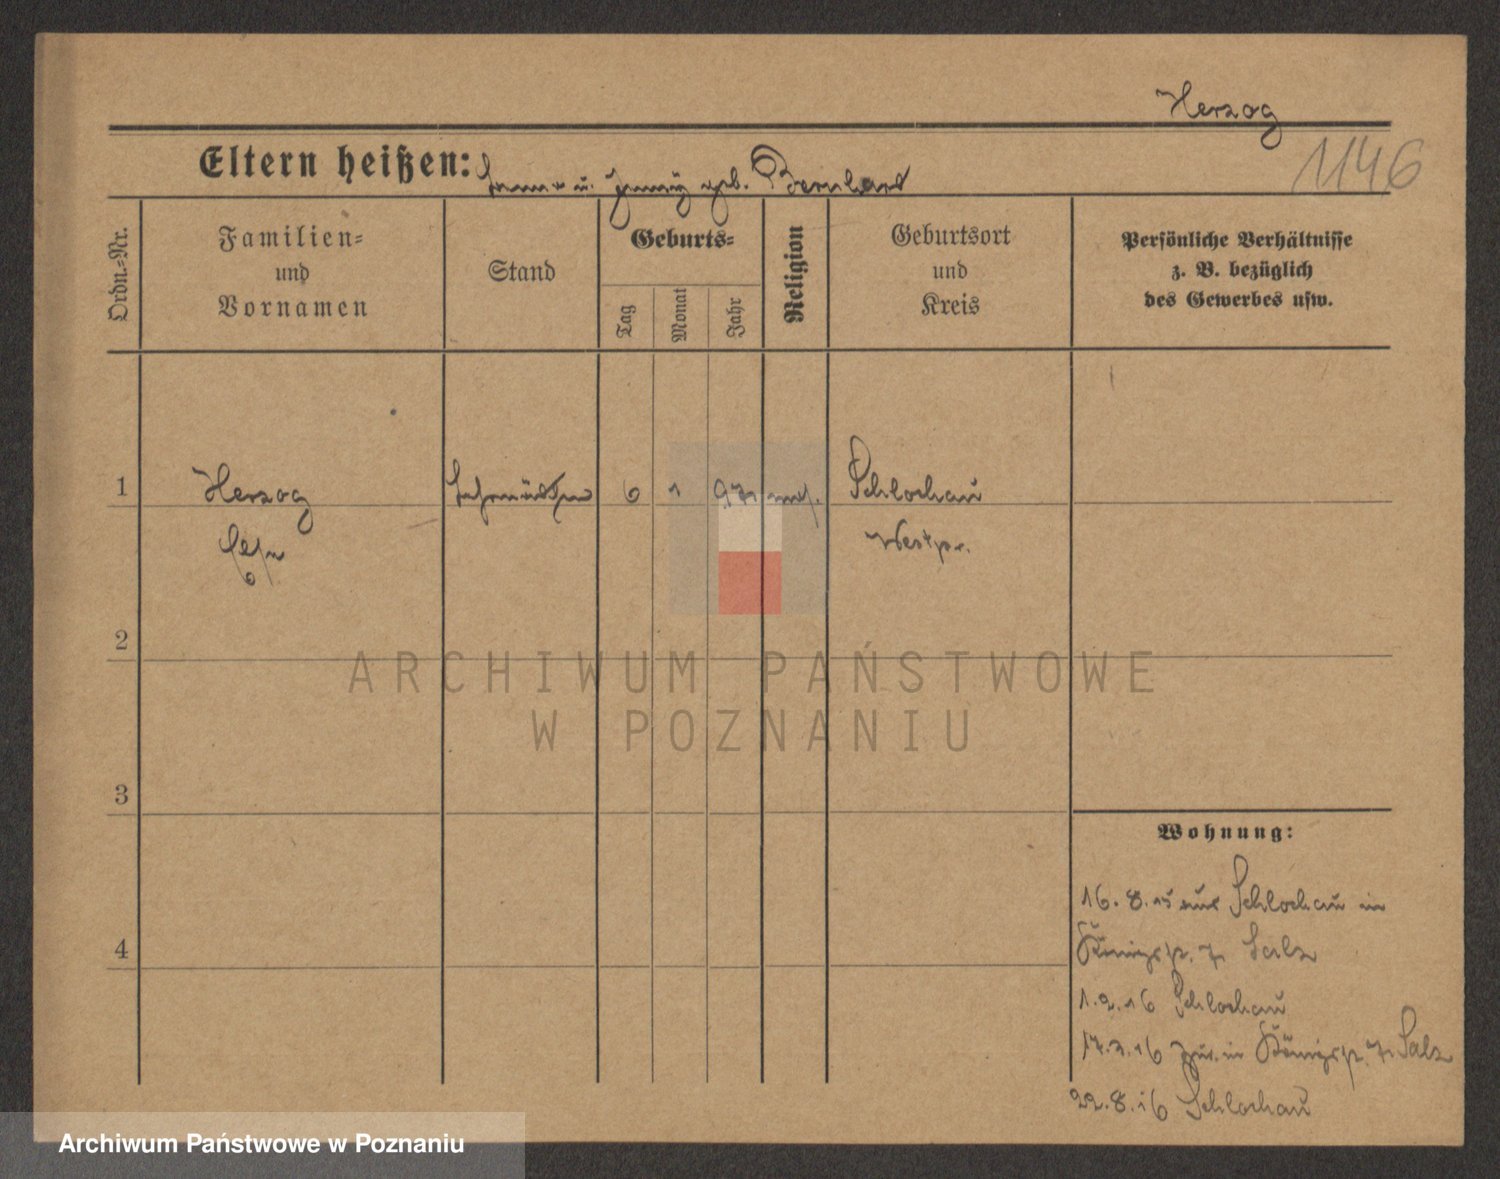 Herzog
1146
Eltern heißen: u. geb. Bernhard
Ordn.-Nr.
Familien-
und
Vornamen
Stand
Geburts-
Tag
Monat
Jahr
Religion
Geburtsort
und
Kreis
Persönliche Verhältnisse
z. B. bezüglich
des Gewerbes usw.
1
Herzog
6
1
Schlochau
Westpr.
2
ARCHIWUM PAŃSTWOWE
W POZNANIU
3
Wohnung:
16. 8. 15 aus Schlochau in
Königsp. 7 Salz
4
1. 2. 16 Schlochau
16 zur. in Königsp. 7 Salz
22. 8. 16 Schlochau
Archiwum Państwowe w Poznaniu